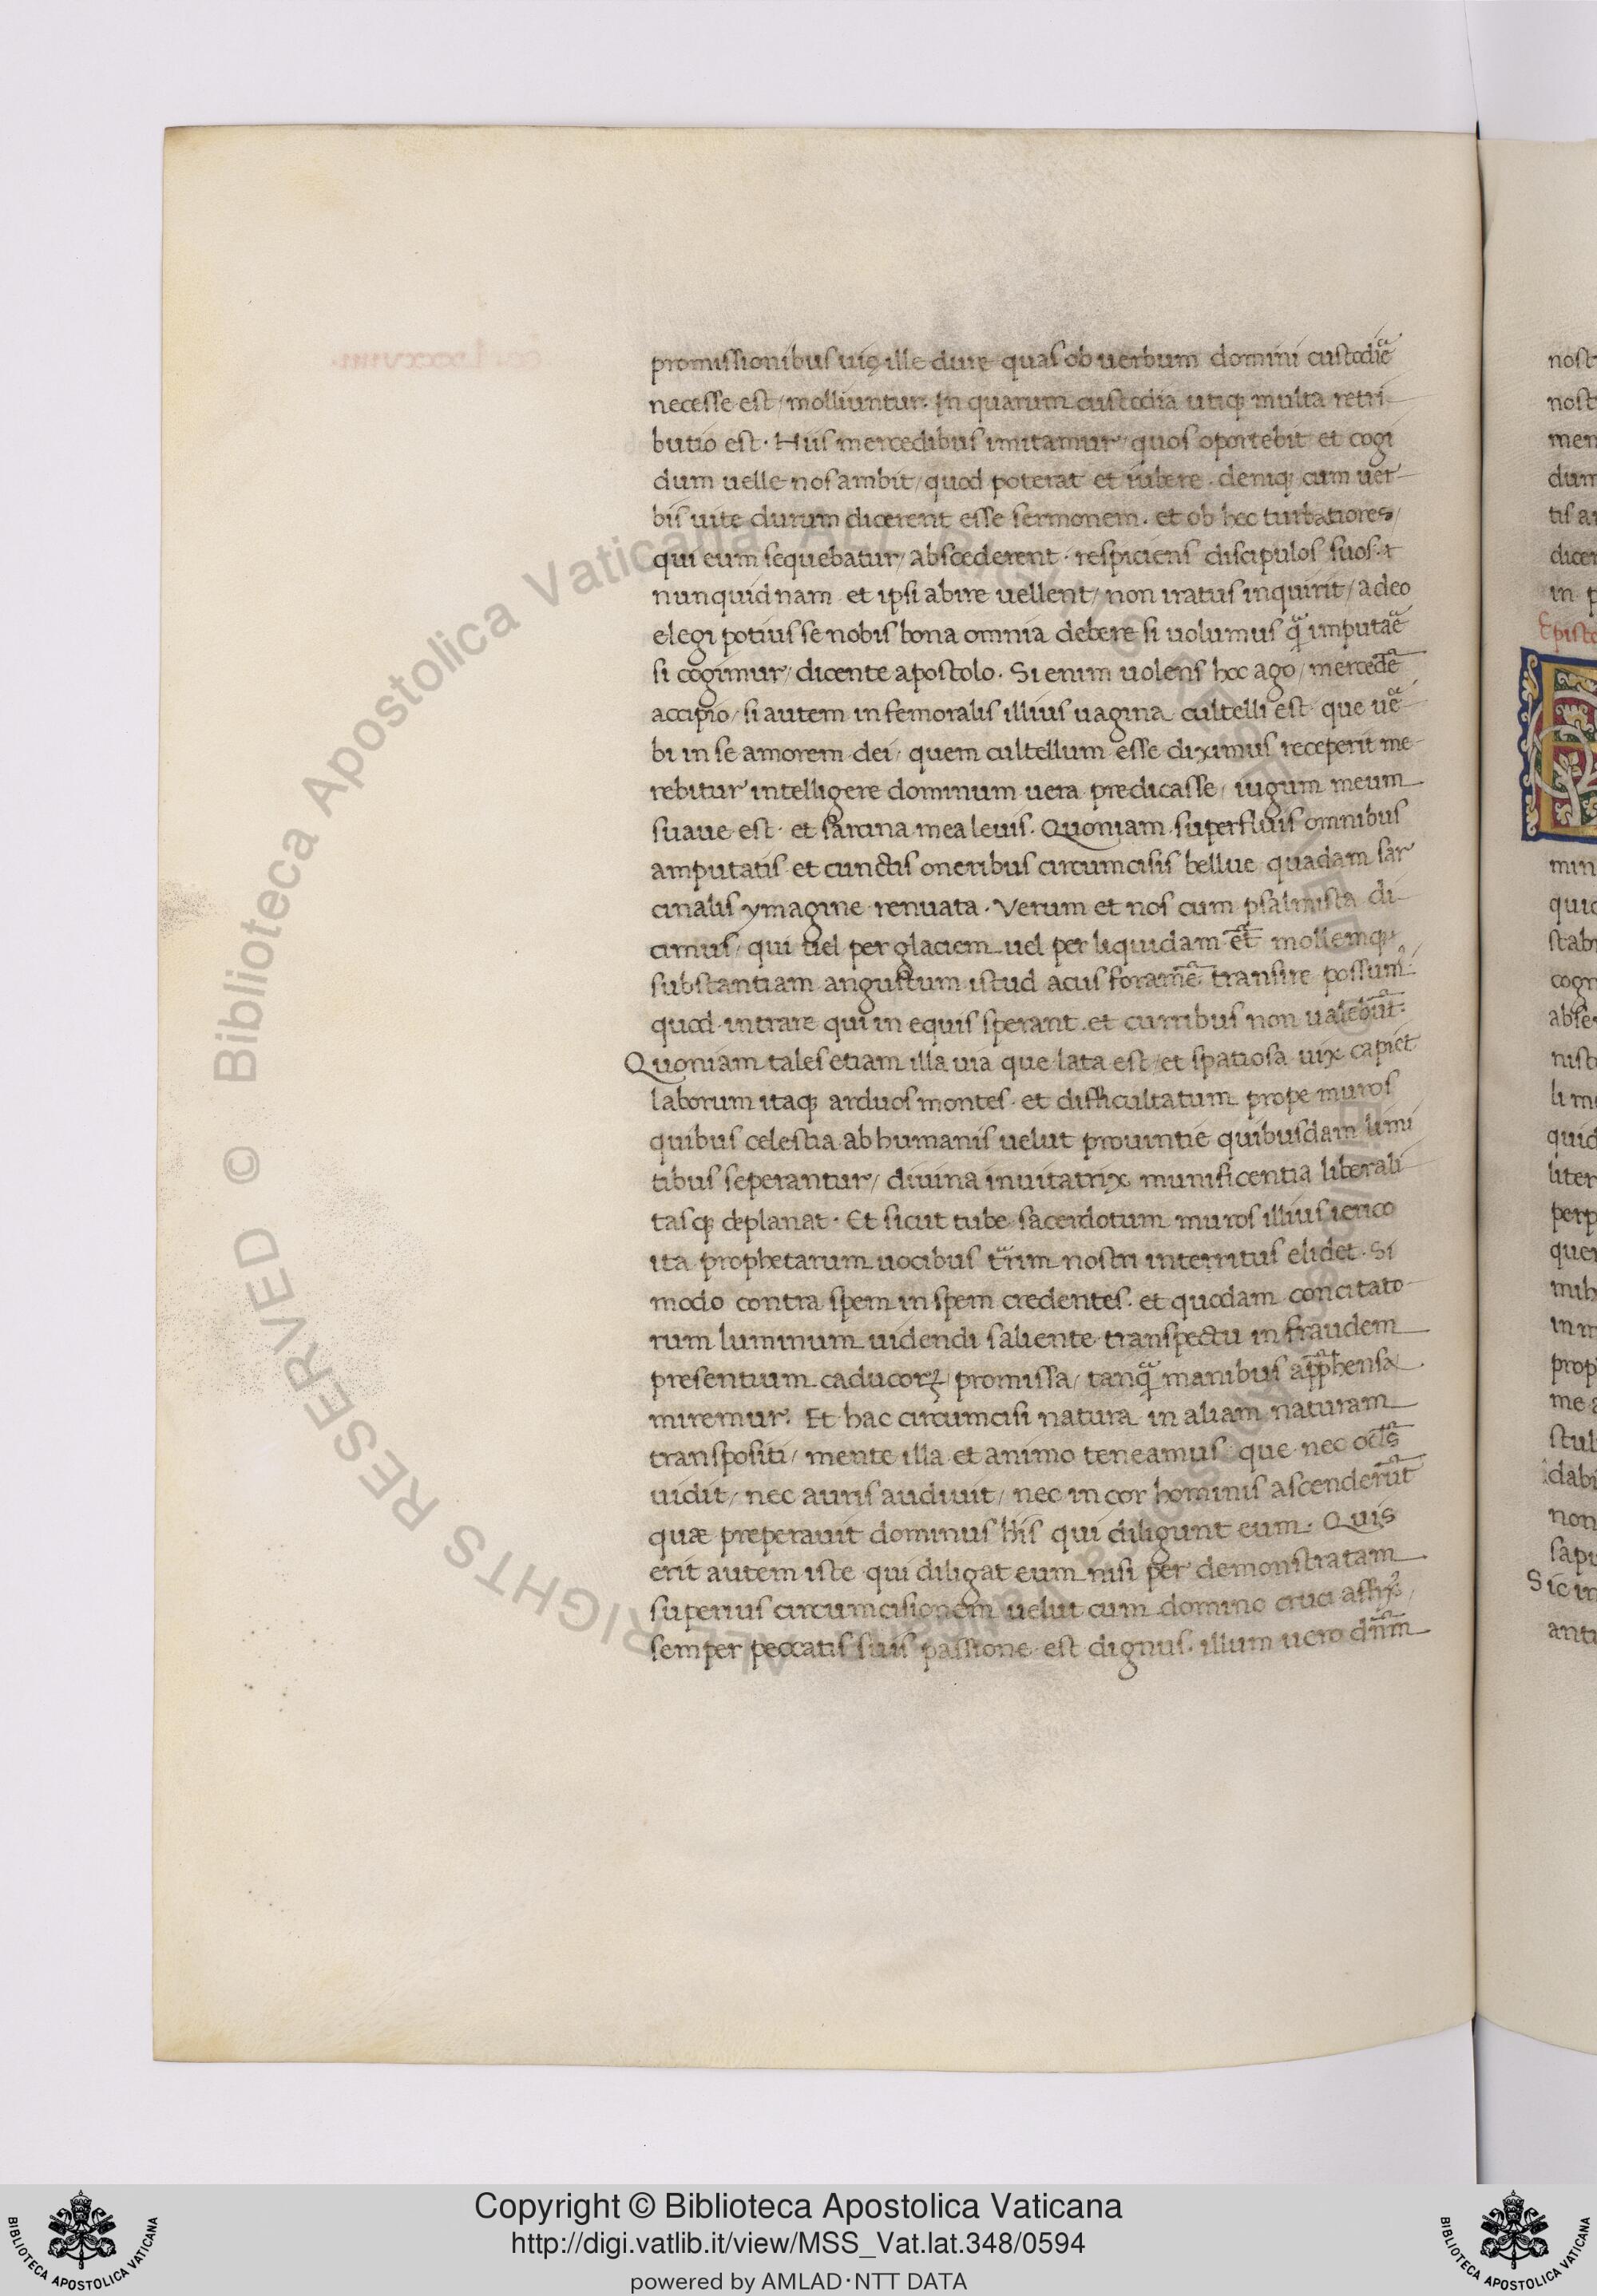 promissionibus uię ille dure quas ob uerbum domini custodiẽ
necesse est / molliuntur. In quarum custodia utiq; multa retri
butio est. Hiis mercedibus imitamur / quos oportebit et cogi
dum uelle nos ambit / quod poterat et iubere. deniq; cum uer
bis uite durum dicerent esse sermonem. et ob hec turbatiores /
qui eum sequebatur / abscederent. respiciens discipulos suos. t
nunquid nam et ipsi abire uellent / non iratus inquirit / adeo
elegi potius se nobis bona omnia debere si uolumus q̃ imputãe
si cogimur / dicente apostolo. Si enim uolens hoc ago / mercedẽ
accipio / si autem in femoralis illius uagina cultelli est que uẽ
bi in se amorem dei / quem cultellum esse diximus receperit me
rebitur intelligere dominum uera predicasse / iugum meum
suaue est. et sarcina mea leuis. Quoniam superfluis omnibus
amputatis et cunctis oneribus circumcisis bellue quadam sar
cinalis ymagine renuata. Verum et nos cum psalmista di
cimus / qui uel per glaciem uel per liquidam et̃ mollemq;
substantiam angustum istud acus foramẽ transire possum⁹.
quod intrare qui in equis sperant. et curribus non ualebũt.
Quoniam tales etiam illa uia que lata est / et spatiosa uix capiet
laborum itaq; arduos montes. et difficultatum prope muros
quibus celestia ab humanis uelut prouintie quibusdam limi
tibus seperantur / diuina inuitatrix munificentia liberali
tasq; deplanat. Et sicut tube sacerdotum muros illius ierico
ita prophetarum uocibus t̃rim nostri interritus elidet. Si
modo contra spem in spem credentes. et quodam concitato
rum luminum uidendi saliente transpectu in fraudem
presentium caducorꝝ / promissa / tanq̃ manibus app̃hensa
miremur. Et hac circumcisi natura in aliam naturam
transpositi / mente illa et animo teneamus que nec ocl̃s
uidit / nec auris audiuit / nec in cor hominis ascenderũt
quæ preperauit dominus hiis qui diligunt eum. Quis
erit autem iste qui diligat eum nisi per demonstratam
superius circumcisionem uelut cum domino cruci affix⁹ /
semper peccatis suis passione est dignus. illum uero dñm
nost
nost
men
dum
tis a
dicer
in p
Episto
min
quid
stab
cogn
abse
nisb
li m
quid
liter
perp
quer
mih
in m
prop
me a
stul
dabi
non
sapi
Sic in
anti
© Biblioteca Apostolica Vaticana ALL RIGHTS RESERVED
Copyright © Biblioteca Apostolica Vaticana
http://digi.vatlib.it/view/MSS_Vat.lat.348/0594
powered by AMLAD·NTT DATA
BIBLIOTECA APOSTOLICA VATICANA
BIBLIOTECA APOSTOLICA VATICANA